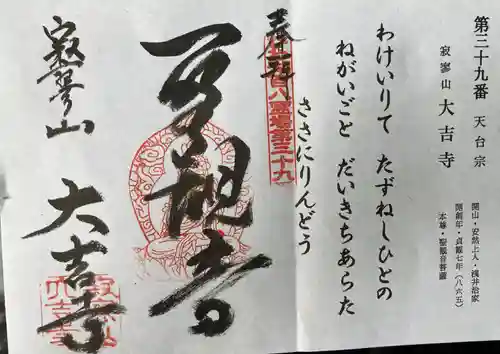 第三十九番 天台宗
寂寥山 大吉寺
開山・安然上人・浅井治家
開創年・貞観七年(八六五)
本尊・聖観音菩薩
わけいりて たずねしひとの
ねがいごと だいきちあらた
ささにりんどう
奉拝
百八霊場第三十九
聖観音
寂寥山
大吉寺